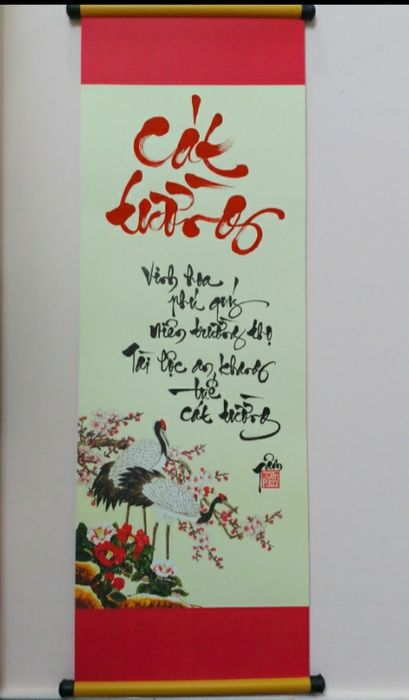 Cát
tường
Vinh hoa
phú quý
niên trường thọ
Tài lộc an khang
tuế
cát tường